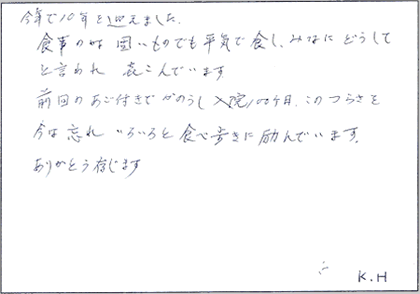 今年で10年を迎えました。
食事の時 固いものでも平気で食し、みなに どうして
と言われ 喜こんでいます
前回のあご付きで かのうし 入院1ヶ月、このつらさを
今は忘れ いろいろと食べ歩きに励んでいます。
ありがとう存じます
K.H